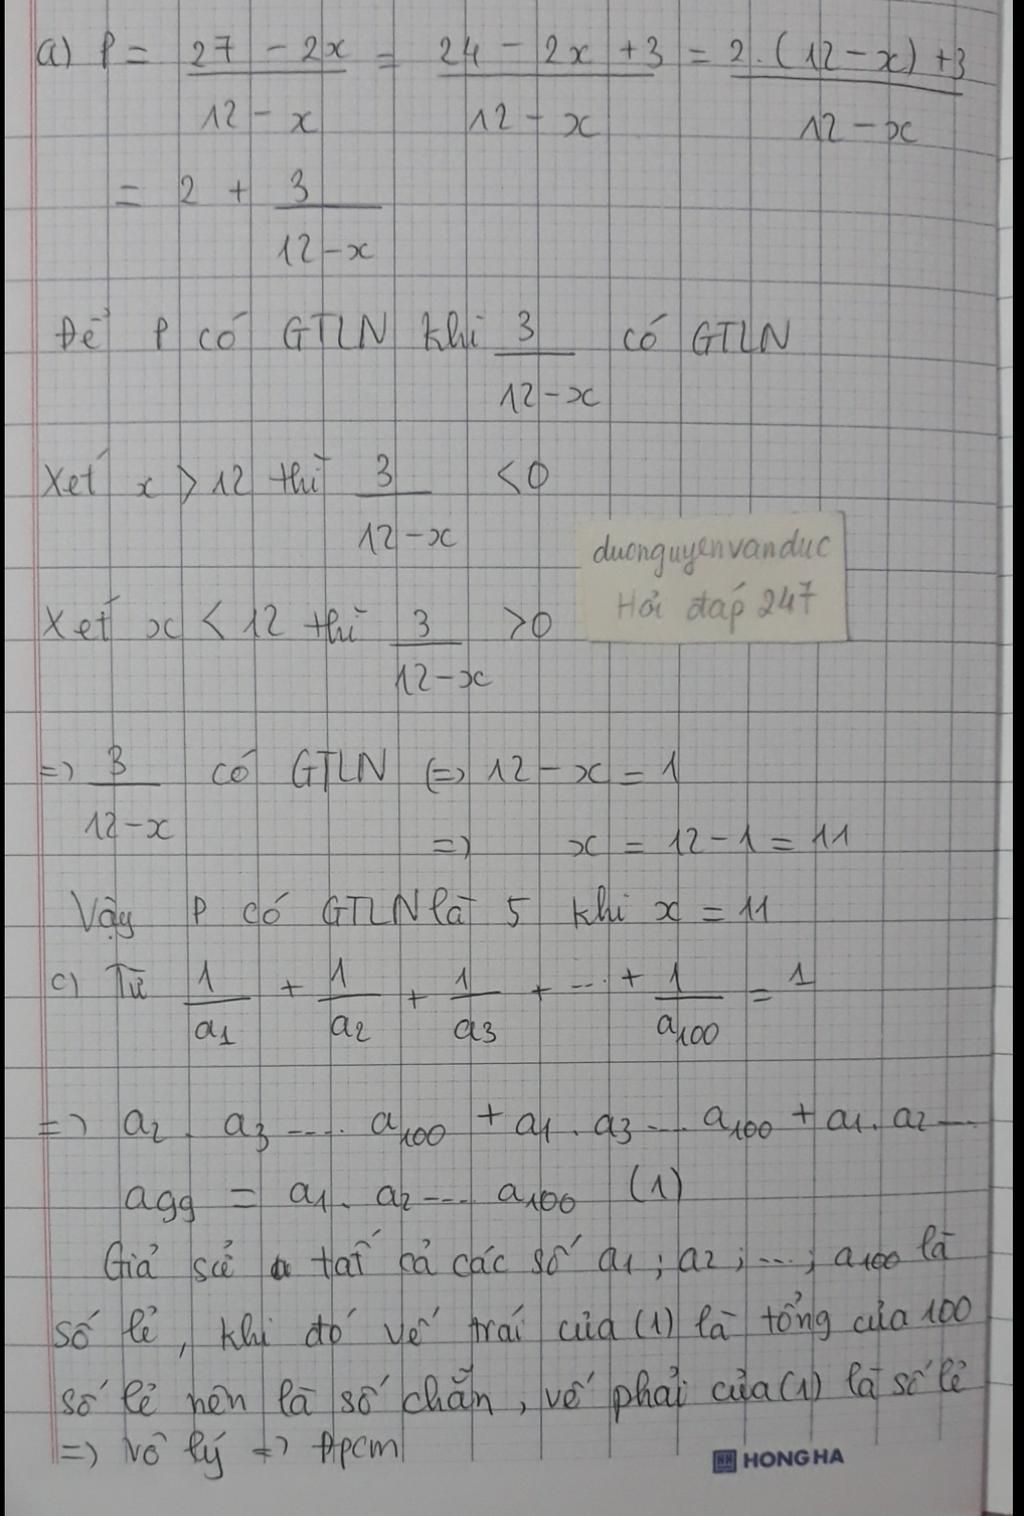 a) P = 27 - 2x / 12 - x = 24 - 2x + 3 / 12 - x = 2.(12-x)+3 / 12-x
= 2 + 3 / 12-x
Để P có GTLN khi 3 / 12-x có GTLN
Xét x > 12 thì 3 / 12-x < 0
duonguyenvanduc
Hỏi đáp 247
Xét x < 12 thì 3 / 12-x > 0
=> 3 / 12-x có GTLN (=> 12 - x = 1
=> x = 12 - 1 = 11
Vậy P có GTLN là 5 khi x = 11
c) Từ 1/a1 + 1/a2 + 1/a3 + ... + 1/a100 = 1
=> a2 . a3 .... a100 + a1 . a3 ... a100 + a1 . a2 ....
a99 = a1 . a2 .... a100 (1)
Giả sử tất cả các số a1 ; a2 ; ... ; a100 là
số lẻ, khi đó vế trái của (1) là tổng của 100
số lẻ nên là số chẵn, vế phải của (1) là số lẻ
=> vô lý => Đpcm
HONG HA